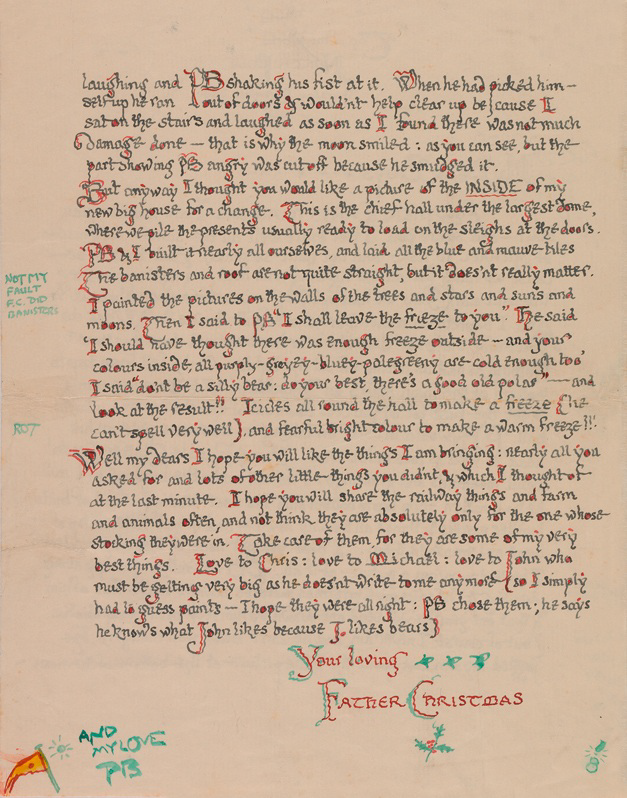 laughing and PB shaking his fist at it. When he had picked him-
self up he ran out of doors & wouldn't help clear up because I
sat on the stairs and laughed as soon as I found there was not much
damage done — that is why the moon smiled : as you can see, but the
part showing PB angry was cut off because he smudged it.
But anyway I thought you would like a picture of the INSIDE of my
new big house for a change. This is the chief hall under the largest dome,
where we pile the presents usually ready to load on the sleighs at the doors.
PB & I built it nearly all ourselves, and laid all the blue and mauve tiles
The banisters and roof are not quite straight, but it does'nt really matter.
NOT MY
FAULT
F.C. DID
BANISTERS
I painted the pictures on the walls of the trees and stars and suns and
moons. Then I said to PB "I shall leave the freeze to you". He said
'I should have thought there was enough freeze outside — and your
colours inside, all purply-greyey-bluey-palegreeny are cold enough too'
I said "don't be a silly bear: do your best, there's a good old polar" — and
look at the result!! Icicles all round the hall to make a freeze (he
can't spell very well), and fearful bright colour to make a warm freeze!!!
ROT
Well my dears I hope you will like the things I am bringing : nearly all you
asked for and lots of other little things you didn't, & which I thought of
at the last minute. I hope you will share the railway things and farm
and animals often, and not think they are absolutely only for the one whose
stocking they were in. Take care of them, for they are some of my very
best things. Love to Chris : love to Michael : love to John who
must be getting very big as he does'nt write to me any more (so I simply
had to guess paints — I hope they were all right : PB chose them ; he says
he knows what John likes because J. likes bears)
Your loving
FATHER CHRISTMAS
AND
MY LOVE
PB